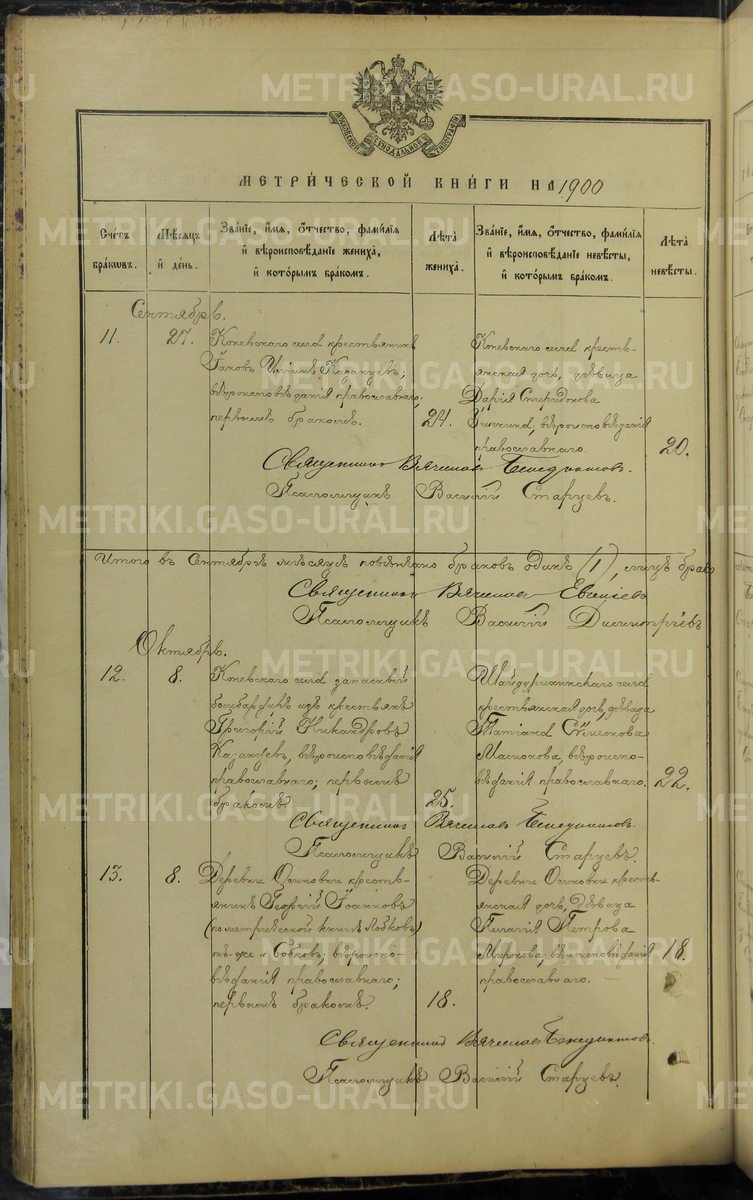 МОСКОВСКОЙ СѴНОДАЛЬНОЙ ТИПОГРАФІИ
МЕТРИ́ЧЕСКОЙ КНИ́ГИ НА 1900
Счетъ браковъ.
Мѣсяцъ и день.
Званіе, имя, отчество, фамилія и вѣроисповѣданіе жениха, и которымъ бракомъ.
Лѣта жениха.
Званіе, имя, отчество, фамилія и вѣроисповѣданіе невѣсты, и которымъ бракомъ.
Лѣта невѣсты.
Сентябрь.
11.
27.
Коневскаго села крестьянинъ
Іаковъ Казанцевъ;
вѣроисповѣданія православнаго;
первымъ бракомъ.
24.
Коневскаго села кресть-
янская дочь, дѣвица
Дарія Спиридонова
вѣроисповѣданія
православнаго.
20.
Священникъ Вячеславъ
Псаломщикъ Василій Старцевъ.
Итого въ Сентябрѣ мѣсяцѣ повѣнчано браковъ одинъ (1),
Священникъ Вячеславъ
Псаломщикъ Василій
Октябрь.
12.
8.
Коневскаго села запасный
бомбардиръ изъ крестьянъ
Григорій Никандровъ
Казанцевъ, вѣроисповѣданія
православнаго; первымъ
бракомъ
25.
Шайдурихинскаго села
крестьянская дочь, дѣвица
Татіана Сѵмеонова
вѣроиспо-
вѣданія православнаго.
22.
Священникъ Вячеславъ
Псаломщикъ Василій Старцевъ.
13.
8.
Деревни Осиновки кресть-
янинъ Георгій Іоанновъ
(по метрической книгѣ
онъ-же и вѣроиспо-
вѣданія православнаго;
первымъ бракомъ.
18.
Деревни Осиновки кресть-
янская дочь, дѣвица
Пелагія Петрова
Миронова, вѣроисповѣданія
православнаго.
18.
Священникъ Вячеславъ
Псаломщикъ Василій Старцевъ.
METRIKI.GASO-URAL.RU